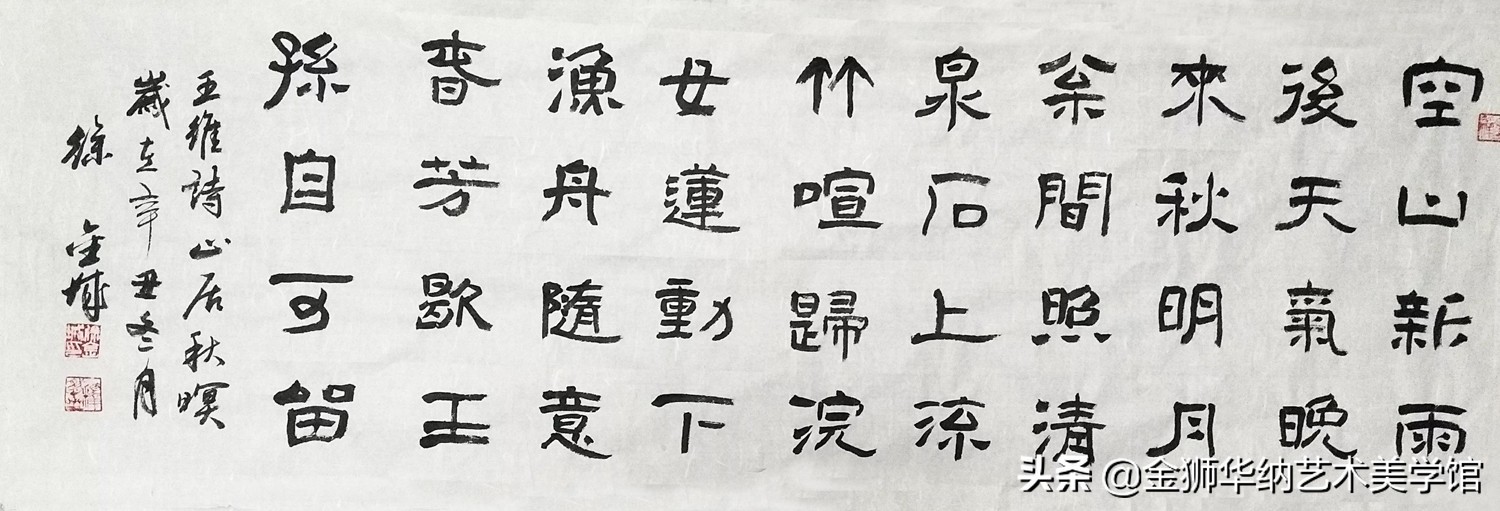 空山新雨
後天氣晚
來秋明月
枀間照清
泉石上流
竹喧歸浣
女蓮動下
漁舟隨意
春芳歇王
孫自可留
王維詩山居秋暝
歲在辛丑冬月
徐金城
头条 @金狮华纳艺术美学馆